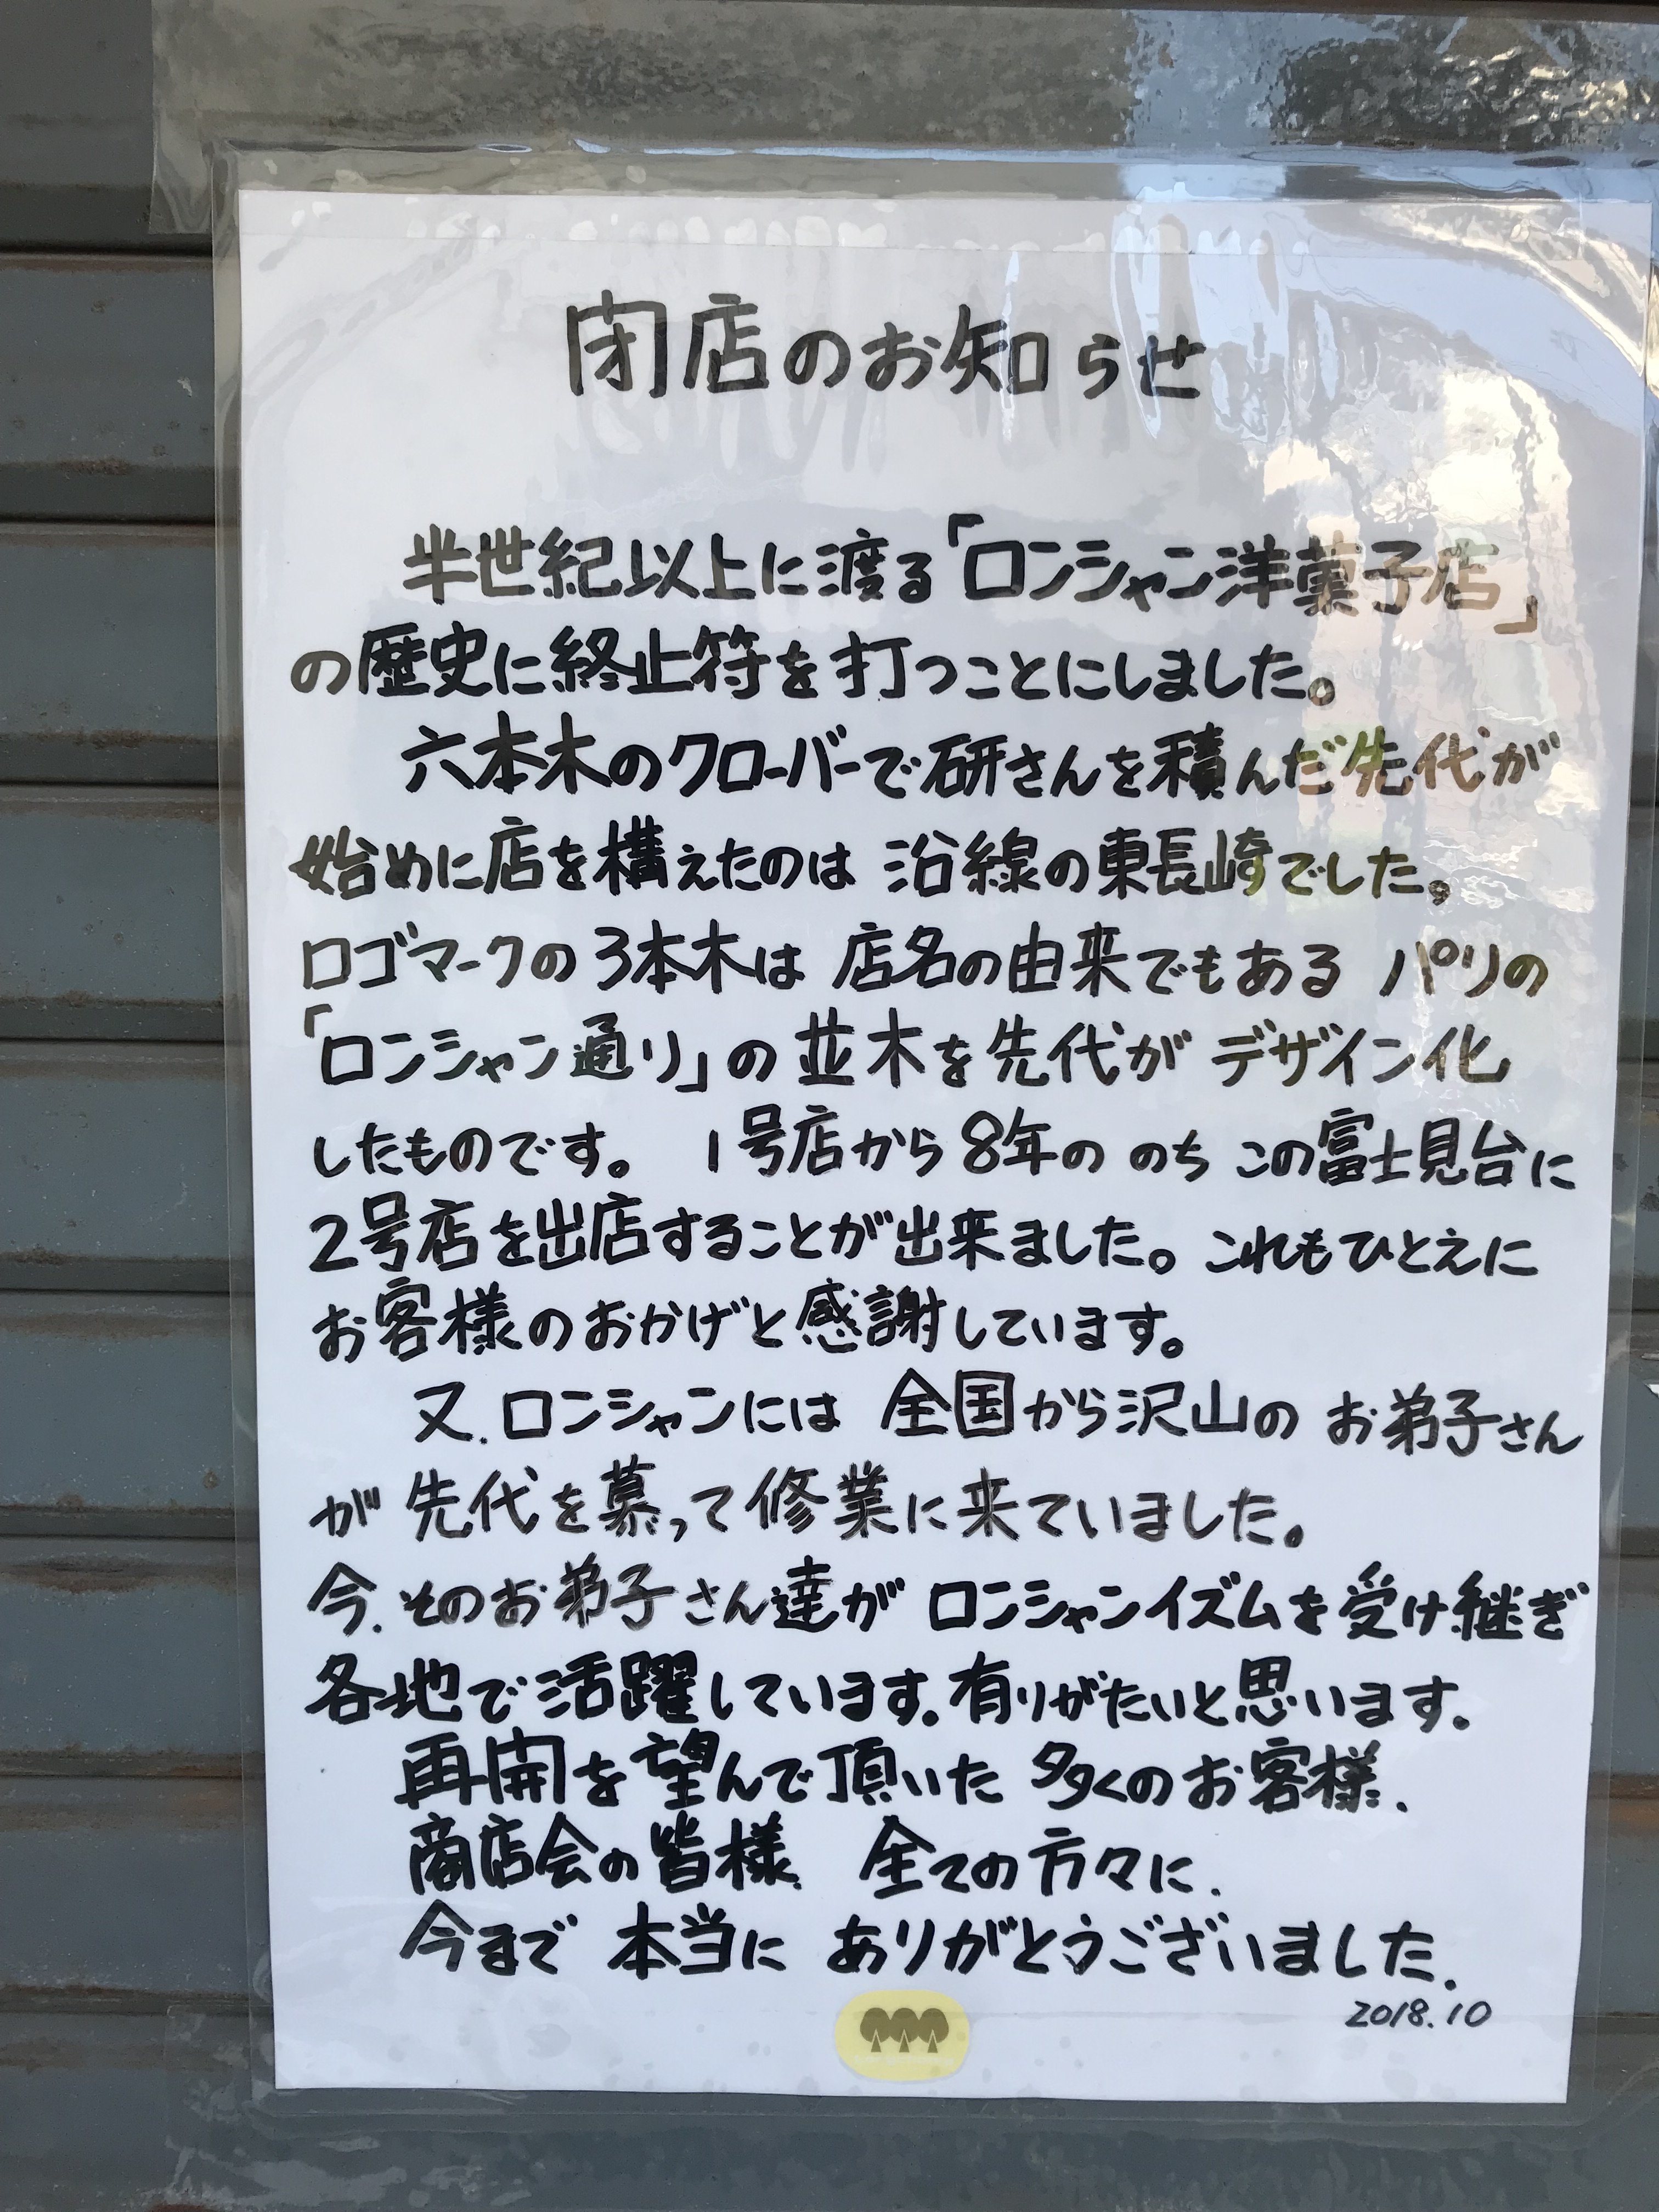 閉店のお知らせ
半世紀以上に渡る「ロンシャン洋菓子店」
の歴史に終止符を打つことにしました。
六本木のクローバーで研さんを積んだ先代が
始めに店を構えたのは 沿線の東長崎でした。
ロゴマークの3本木は 店名の由来でもある パリの
「ロンシャン通り」の並木を先代が デザイン化
したものです。 1号店から8年の のち この富士見台に
2号店を出店することが出来ました。これもひとえに
お客様のおかげと感謝しています。
又、ロンシャンには 全国から沢山の お弟子さん
が 先代を慕って修業に来ていました。
今、そのお弟子さん達が ロンシャンイズムを受け継ぎ
各地で活躍しています。有りがたいと思います。
再開を望んで頂いた 多くのお客様、
商店会の皆様、 全ての方々に、
今まで 本当に ありがとうございました。
2018.10